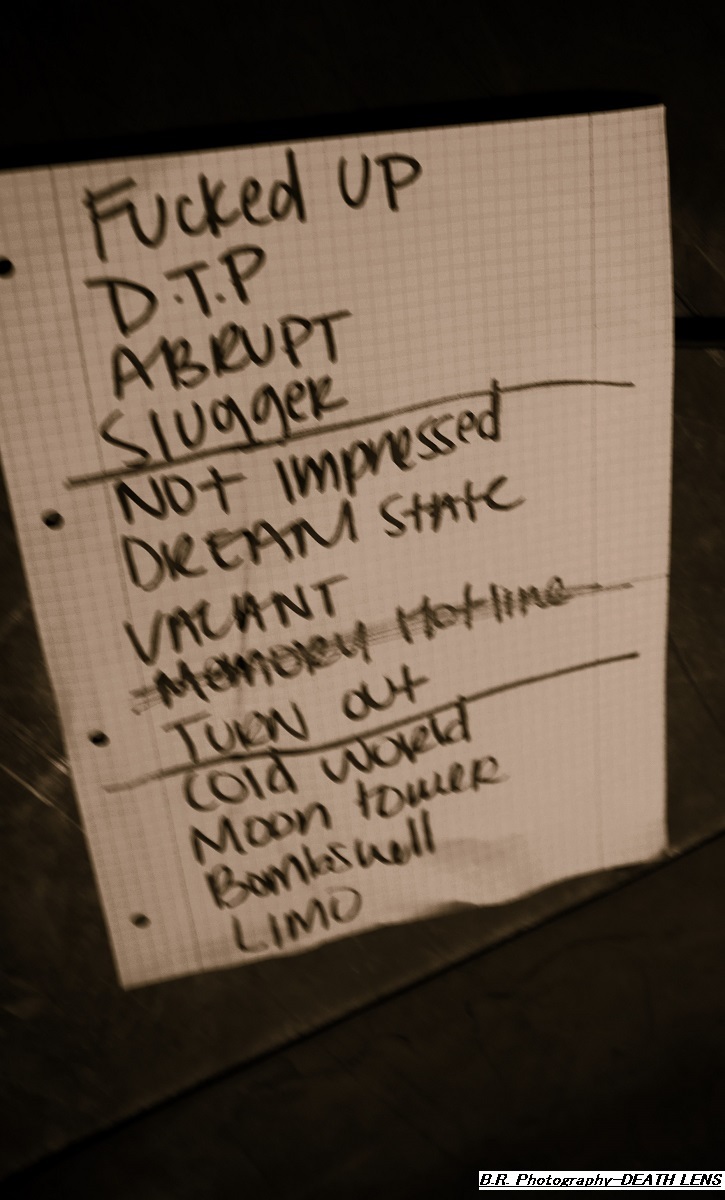 Fucked UP
D.T.P
ABRUPT
Slugger
NOt Impressed
DREAM State
VACANT
Memory Hotline
TURN Out
Cold World
Moon tower
Bombshell
LIMO
B.R. Photography-DEATH LENS